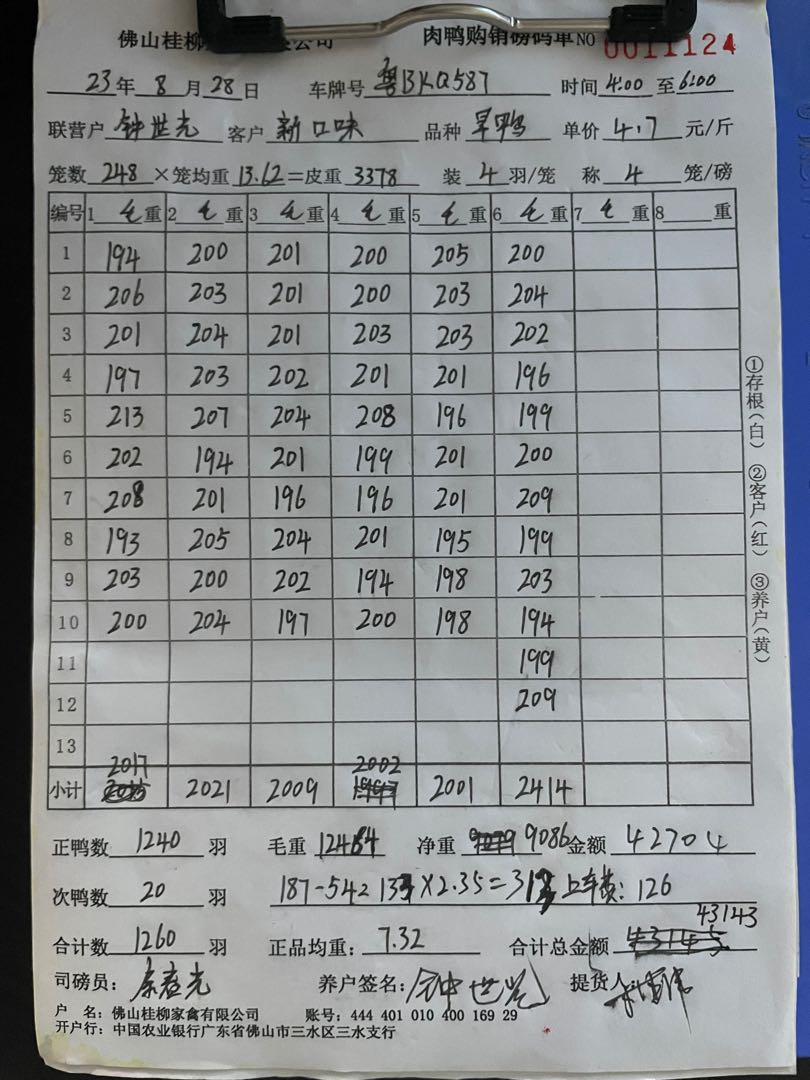 佛山桂柳 限公司 肉鸭购销磅码单 NO 0011124
23年8月28日 车牌号 粤BKQ587 时间4:00至6:00
联营户 钟世光 客户 新口味 品种 旱鸭 单价 4.7 元/斤
笼数 248 ×笼均重 13.62=皮重 3378 装 4 羽/笼 称 4 笼/磅
编号 1 毛重 2 毛重 3 毛重 4 毛重 5 毛重 6 毛重 7 毛重 8 重
1 194 200 201 200 205 200
2 206 203 201 200 203 204
3 201 204 201 203 203 202
4 197 203 202 201 201 196
5 213 207 204 208 196 199
6 202 194 201 199 201 200
7 208 201 196 196 201 209
8 193 205 204 201 195 199
9 203 200 202 194 198 203
10 200 204 197 200 198 194
11 199
12 209
13
小计 2017 2021 2009 2002 2001 2414
①存根(白) ②客户(红) ③养户(黄)
正鸭数 1240 羽 毛重 12464 净重 9086 金额 42704
次鸭数 20 羽 187-54=133×2.35=313 上车费:126
合计数 1260 羽 正品均重: 7.32 合计总金额 43143
司磅员: 养户签名: 钟世光 提货人
户 名: 佛山桂柳家禽有限公司 账号: 444 401 010 400 169 29
开户行: 中国农业银行广东省佛山市三水区三水支行